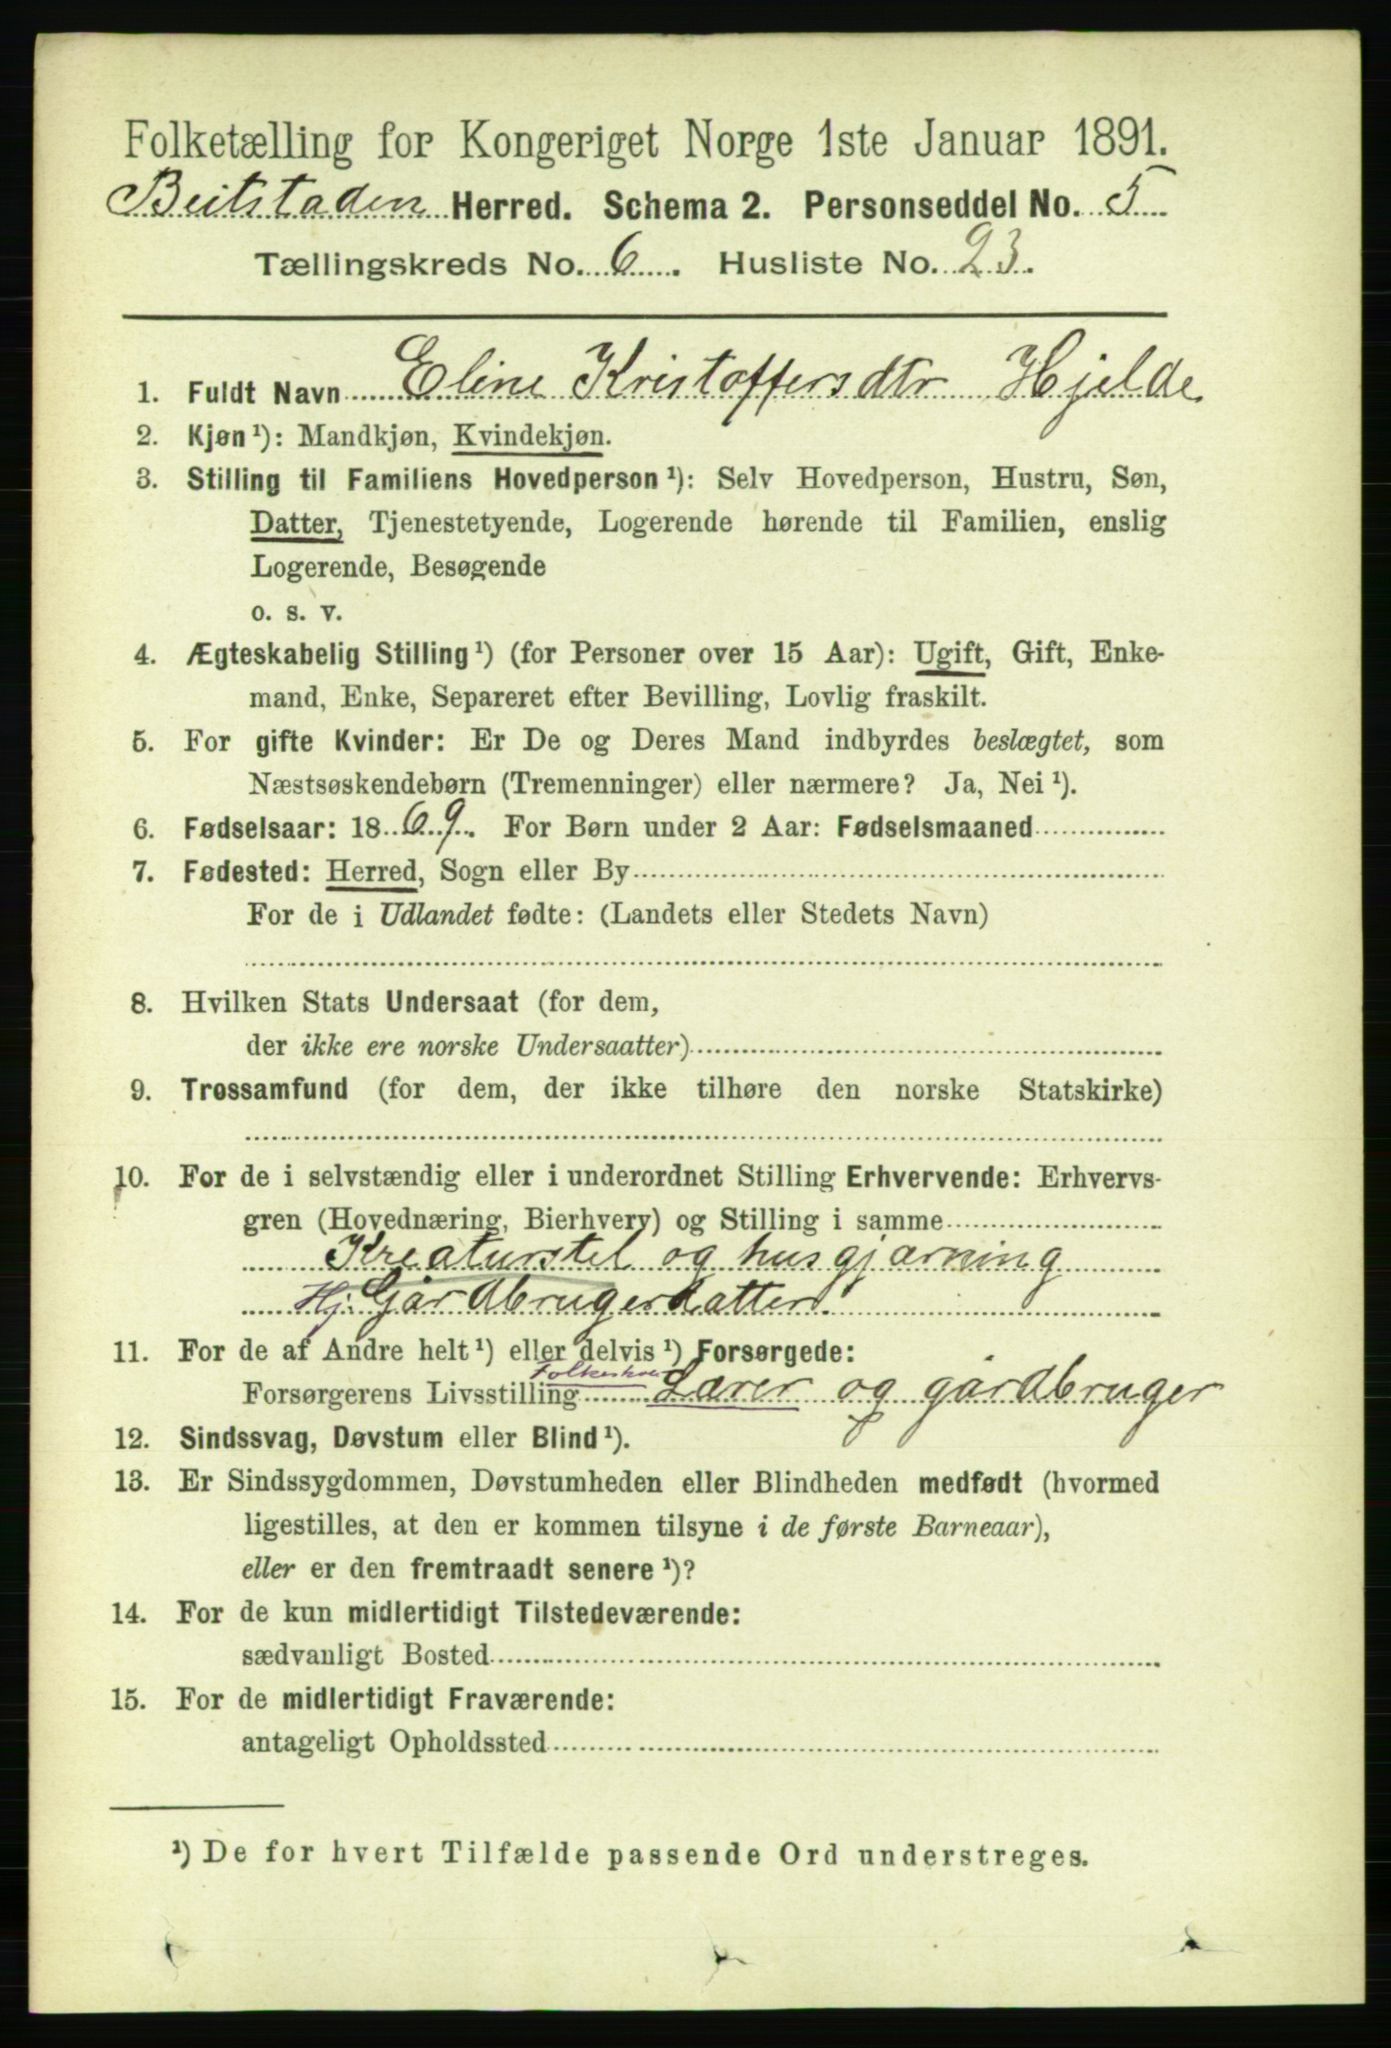 Folketælling for Kongeriget Norge 1ste Januar 1891.
Beitstaden Herred. Schema 2. Personseddel No. 5
Tællingskreds No. 6. Husliste No. 23.
1. Fuldt Navn Eline Kristoffersdtr Hjelde
2. Kjøn ¹): Mandkjøn, Kvindekjøn.
3. Stilling til Familiens Hovedperson ¹): Selv Hovedperson, Hustru, Søn,
Datter, Tjenestetyende, Logerende hørende til Familien, enslig
Logerende, Besøgende
o. s. v.
4. Ægteskabelig Stilling ¹) (for Personer over 15 Aar): Ugift, Gift, Enke-
mand, Enke, Separeret efter Bevilling, Lovlig fraskilt.
5. For gifte Kvinder: Er De og Deres Mand indbyrdes beslægtet, som
Næstsøskendebørn (Tremenninger) eller nærmere? Ja, Nei ¹).
6. Fødselsaar: 1869. For Børn under 2 Aar: Fødselsmaaned
7. Fødested: Herred, Sogn eller By
For de i Udlandet fødte: (Landets eller Stedets Navn)
8. Hvilken Stats Undersaat (for dem,
der ikke ere norske Undersaatter)
9. Trossamfund (for dem, der ikke tilhøre den norske Statskirke)
10. For de i selvstændig eller i underordnet Stilling Erhvervende: Erhvervs-
gren (Hovednæring, Bierhverv) og Stilling i samme
Kreaturstel og husgjærning
Hj. Gårdbrugerdatter.
11. For de af Andre helt ¹) eller delvis ¹) Forsørgede:
Forsørgerens Livsstilling Lærer og gårdbruger
12. Sindssvag, Døvstum eller Blind ¹).
13. Er Sindssygdommen, Døvstumheden eller Blindheden medfødt (hvormed
ligestilles, at den er kommen tilsyne i de første Barneaar),
eller er den fremtraadt senere ¹)?
14. For de kun midlertidigt Tilstedeværende:
sædvanligt Bosted
15. For de midlertidigt Fraværende:
antageligt Opholdssted
¹) De for hvert Tilfælde passende Ord understreges.